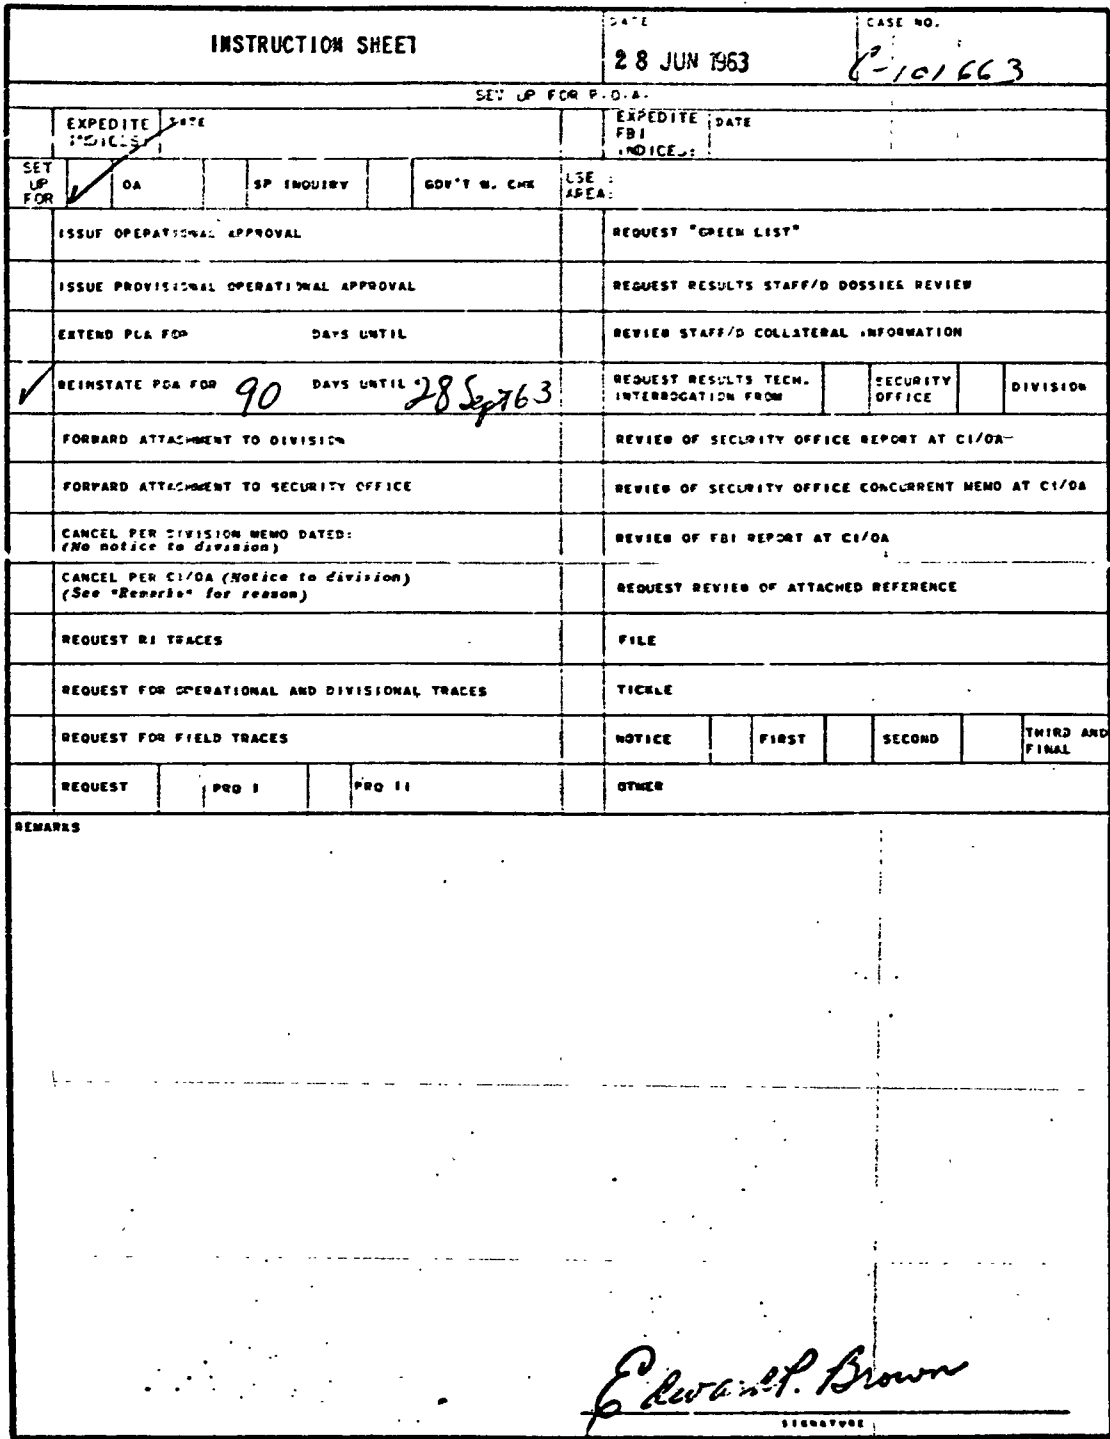 INSTRUCTION SHEET
DATE
28 JUN 1963
CASE NO.
C-101663
SET UP FOR P.O.A.
EXPEDITE INDICES: DATE
EXPEDITE FBI INDICES: DATE
SET UP FOR
OA
SP INQUIRY
GOV'T W. CHK
USE AREA:
ISSUE OPERATIONAL APPROVAL
REQUEST "GREEN LIST"
ISSUE PROVISIONAL OPERATIONAL APPROVAL
REQUEST RESULTS STAFF/D DOSSIER REVIEW
EXTEND POA FOR DAYS UNTIL
REVIEW STAFF/D COLLATERAL INFORMATION
✓ REINSTATE POA FOR 90 DAYS UNTIL 28 Sept 63
REQUEST RESULTS TECH. INTERROGATION FROM
SECURITY OFFICE
DIVISION
FORWARD ATTACHMENT TO DIVISION
REVIEW OF SECURITY OFFICE REPORT AT CI/OA
FORWARD ATTACHMENT TO SECURITY OFFICE
REVIEW OF SECURITY OFFICE CONCURRENT MEMO AT CI/OA
CANCEL PER DIVISION MEMO DATED:
(No notice to division)
REVIEW OF FBI REPORT AT CI/OA
CANCEL PER CI/OA (Notice to division)
(See "Remarks" for reason)
REQUEST REVIEW OF ATTACHED REFERENCE
REQUEST RI TRACES
FILE
REQUEST FOR OPERATIONAL AND DIVISIONAL TRACES
TICKLE
REQUEST FOR FIELD TRACES
NOTICE
FIRST
SECOND
THIRD AND FINAL
REQUEST
PRQ I
PRQ II
OTHER
REMARKS
Edward P. Brown
SIGNATURE